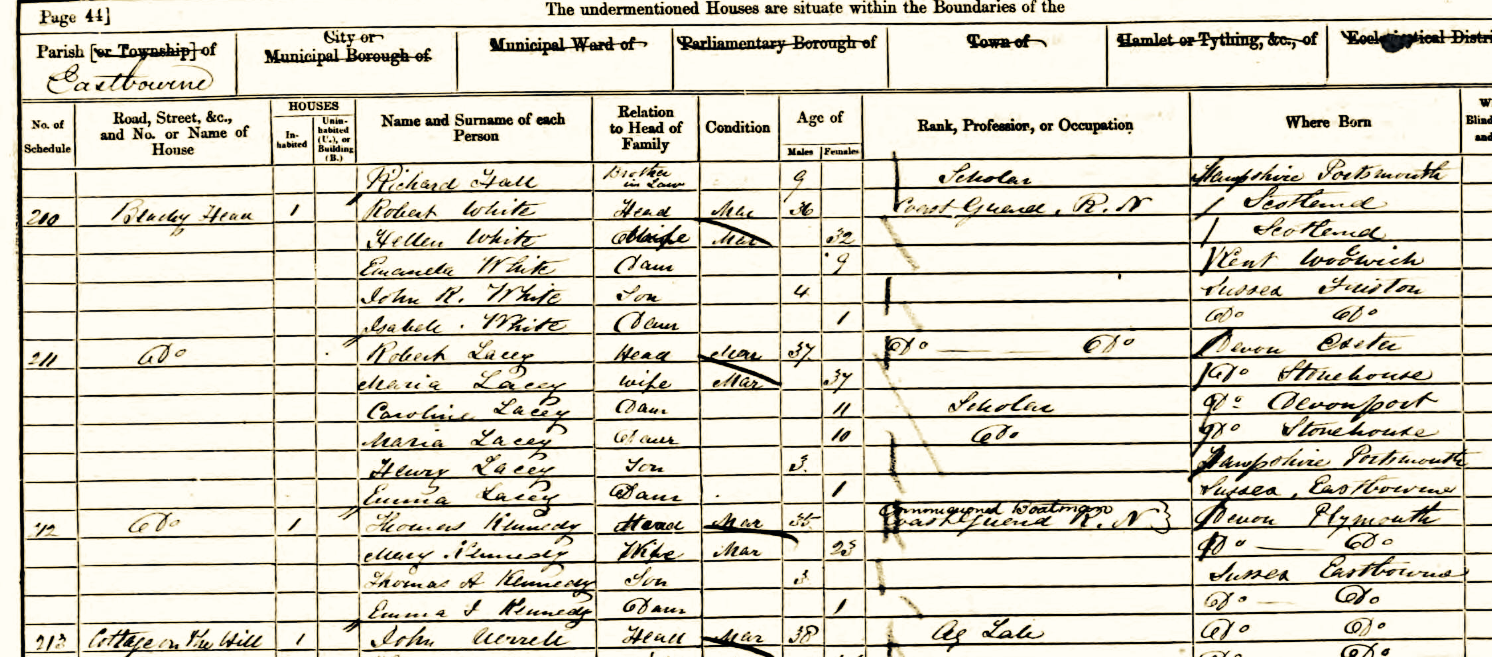 Page 44]
The undermentioned Houses are situate within the Boundaries of the
Parish [or Township] of
Eastbourne
City or
Municipal Borough of
Municipal Ward of
Parliamentary Borough of
Town of
Hamlet or Tything, &c., of
Ecclesiastical Distri
No. of
Schedule
Road, Street, &c.,
and No. or Name of
House
HOUSES
In-
habited
Unin-
habited
(U.), or
Building
(B.)
Name and Surname of each
Person
Relation
to Head of
Family
Condition
Age of
Males Females
Rank, Profession, or Occupation
Where Born
W
Blind
and
Richard Hall Brother in Law 9 Scholar Hampshire Portsmouth
210 Beachy Head 1 Robert White Head Mar 36 Coast Guard, R. N Scotland
Hellen White Wife Mar 32 Scotland
White Daur 9 Kent Woolwich
John R. White Son 4 Sussex Friston
Isabell. White Daur 1 Do Do
211 Do Robert Lacey Head Mar 37 Do Do Devon Exeter
Maria Lacey Wife Mar 37 Do Stonehouse
Caroline Lacey Daur 11 Scholar Do Devonport
Maria Lacey Daur 10 Do Do Stonehouse
Henry Lacey Son 3 Hampshire Portsmouth
Emma Lacey Daur 1 Sussex, Eastbourne
212 Do 1 Thomas Kennedy Head Mar 35 Commissioned Boatman Coast Guard R. N } Devon Plymouth
Mary Kennedy Wife Mar 23 Do Do
Thomas A Kennedy Son 3 Sussex Eastbourne
Emma J Kennedy Daur 1 Do Do
213 Cottage on The Hill 1 John Head Mar 38 Ag Lab Do Do